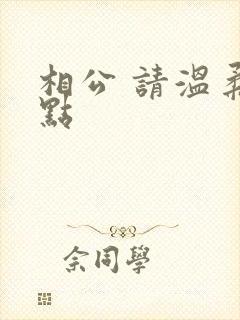 相公 請溫柔
點
佘同學